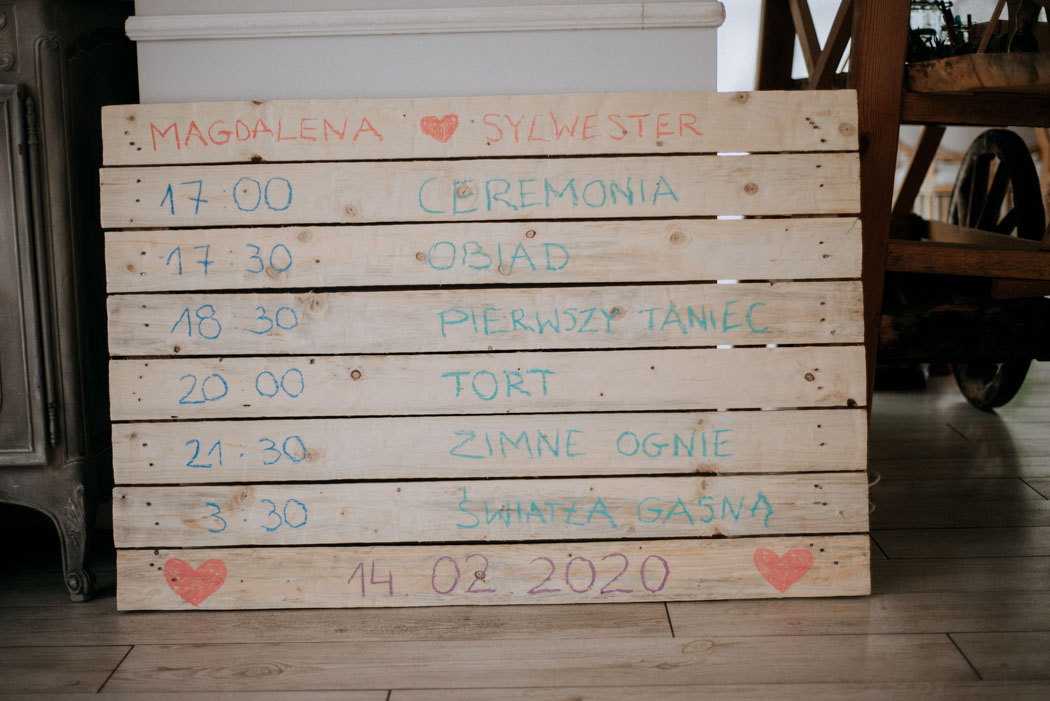 MAGDALENA ❤ SYLWESTER
17:00 CEREMONIA
17:30 OBIAD
18:30 PIERWSZY TANIEC
20:00 TORT
21:30 ZIMNE OGNIE
3:30 ŚWIATŁA GASNĄ
14.02.2020